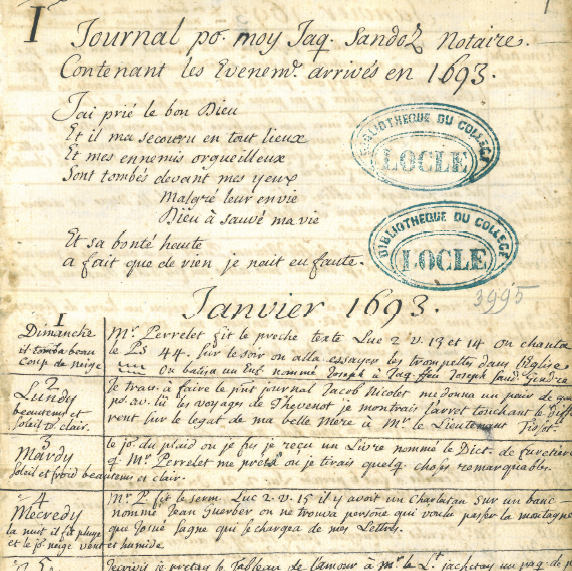 I
1
Journal po. moy Jaq. Sandoz Notaire.
Contenant les Evenemt. arrivés en 1693.
J'ai prié le bon Dieu
Et il ma secouru en tout lieux
Et mes ennemis orgueilleux
Sont tombés devant mes yeux
Malgré leur envie
Dieu à sauvé ma vie
Et sa bonté haute
a fait que de rien je n'ait eu faute.
BIBLIOTHEQUE DU COLLEGE
LOCLE
BIBLIOTHEQUE DU COLLEGE
LOCLE
3995
Janvier 1693.
1
Dimanche
il tomba beau
coup de neige
Mr. Perrelet fit le preche texte Luc 2 v. 13 et 14 on chanta
le Ps 44. Sur le soir on alla essayer les trompettes dans l'Eglise
on batisa un Enf. nommé Joseph à Jaq. ffeu Joseph Sand. Gendre
2
Lundy
beautems et
soleil cler clair.
Je trais. à faire le pnt journal Jacob Nicolet me donna un pair de
po. av. lû les voyages de Thevenot je montrais l'arret touchant le diff
rent sur le legat de ma belle Mere à Mr. le Lieutenant
3
Mardy
Soleil et froid beautems et clair.
le jo. du plaid ou je fus je reçu un Livre nommé le Dict. de furetiere
q. Mr. Perrelet me preta ou je tirais quelq. choses remarquables.
4
Mecredy
la nuit il fit pluye
et le jo. neige vent et humide
Mr. P. fit le serm. Luc 2. v. 15 il y avoit un Charlatan sur un banc
nommé Jean Guerber on ne trouva persone qui voulu passer la montagne
que Josué Sagne qui se chargea de mes Lettres.
J'ecrivis je pretay le Tableau de l'amour à Mr. le Lt.